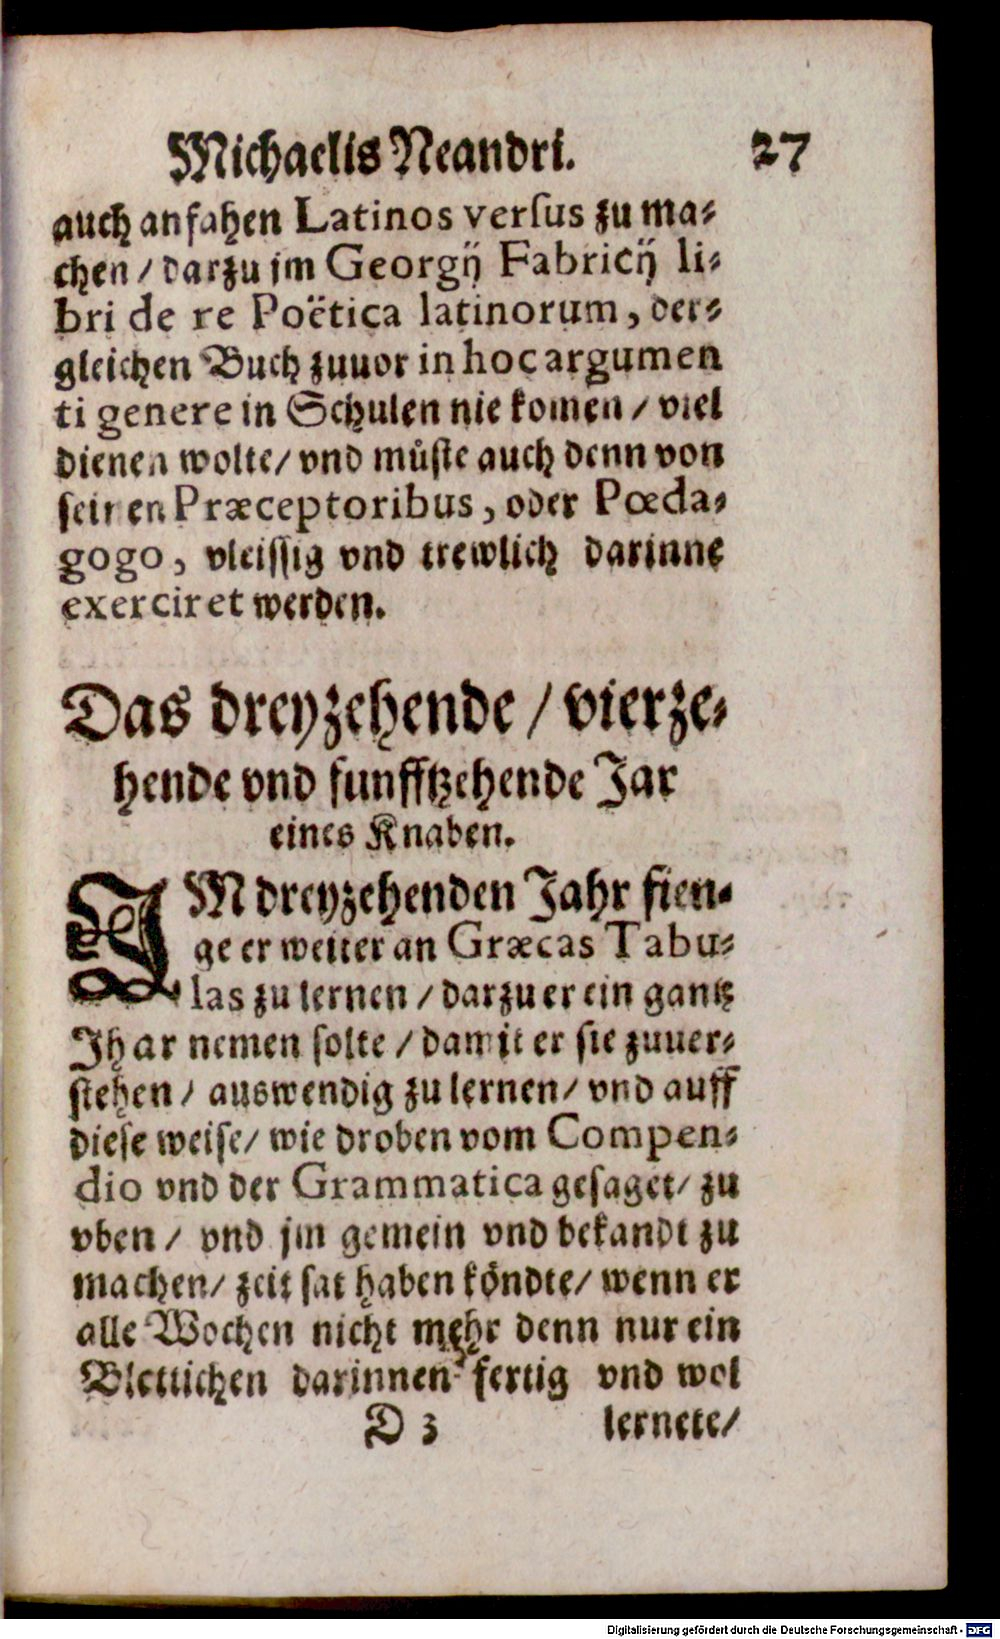 Michaelis Neandri. 27
auch anfahen Latinos versus zu ma-
chen / darzu jm Georgij Fabricij li-
bri de re Poëtica latinorum, der-
gleichen Buch zuuor in hoc argumen
ti genere in Schulen nie komen / viel
dienen wolte / vnd müste auch denn von
seinen Præceptoribus, oder Pœda-
gogo, vleissig vnd trewlich darinne
exerciret werden.
Das dreyzehende / vierze-
hende vnd funfftzehende Jar
eines Knaben.
IM dreyzehenden Jahr fien-
ge er weiter an Græcas Tabu-
las zu lernen / darzu er ein gantz
Jhar nemen solte / damit er sie zuuer-
stehen / auswendig zu lernen / vnd auff
diese weise / wie droben vom Compen-
dio vnd der Grammatica gesaget / zu
vben / vnd jm gemein vnd bekandt zu
machen / zeit sat haben köndte / wenn er
alle Wochen nicht mehr denn nur ein
Blettichen darinnen fertig vnd wol
D 3 lernete /
Digitalisierung gefördert durch die Deutsche Forschungsgemeinschaft - DFG